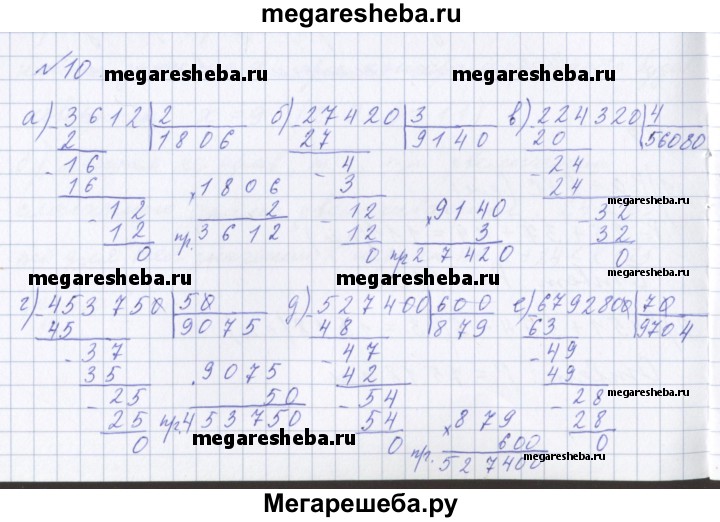 megaresheba.ru
№10
megaresheba.ru megaresheba.ru
а) 3612 | 2 б) 27420 | 3 в) 224320 | 4
2 1806 27 9140 20 56080
- 16 - 4 - 24
16 3 24
megaresheba.ru
- 12 × 1806 - 12 × 9140 - 32
12 2 12 3 32
0 пр. 3612 0 пр. 27420 0
megaresheba.ru megaresheba.ru megaresheba.ru
г) 453750 | 50 д) 527400 | 600 е) 679280 | 70
45 9075 48 879 63 9704
- 37 - 47 - 49
35 × 9075 42 49
- 25 50 - 54 - 28
25 пр. 453750 54 × 879 28
0 0 600 0
пр. 527400
megaresheba.ru megaresheba.ru
Мегарешеба.ру